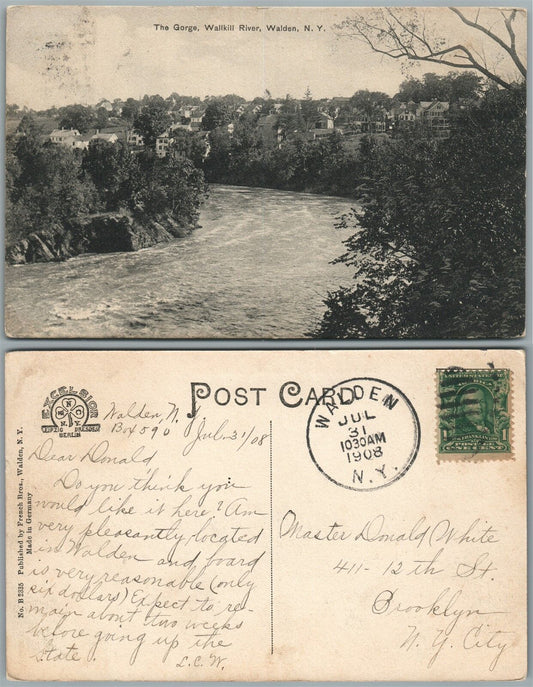 The Gorge, Wallkill River, Walden, N. Y.
EXCELSIOR
N.Y.
LEIPZIG DRESDEN
BERLIN
POST CARD
WALDEN
JUL
31
1030AM
1908
N.Y.
No. B 2335 Published by French Bros., Walden, N. Y.
Made in Germany
Walden, N. Y
Box 590
Jul. 31/08
Dear Donald
Do you think you
would like it here? Am
very pleasantly located
in Walden and board
is very reasonable (only
six dollars) Expect to re-
main about two weeks
before going up the
State.
L.C.W.
Master Donald White
411 - 12th St.
Brooklyn
N. Y. City